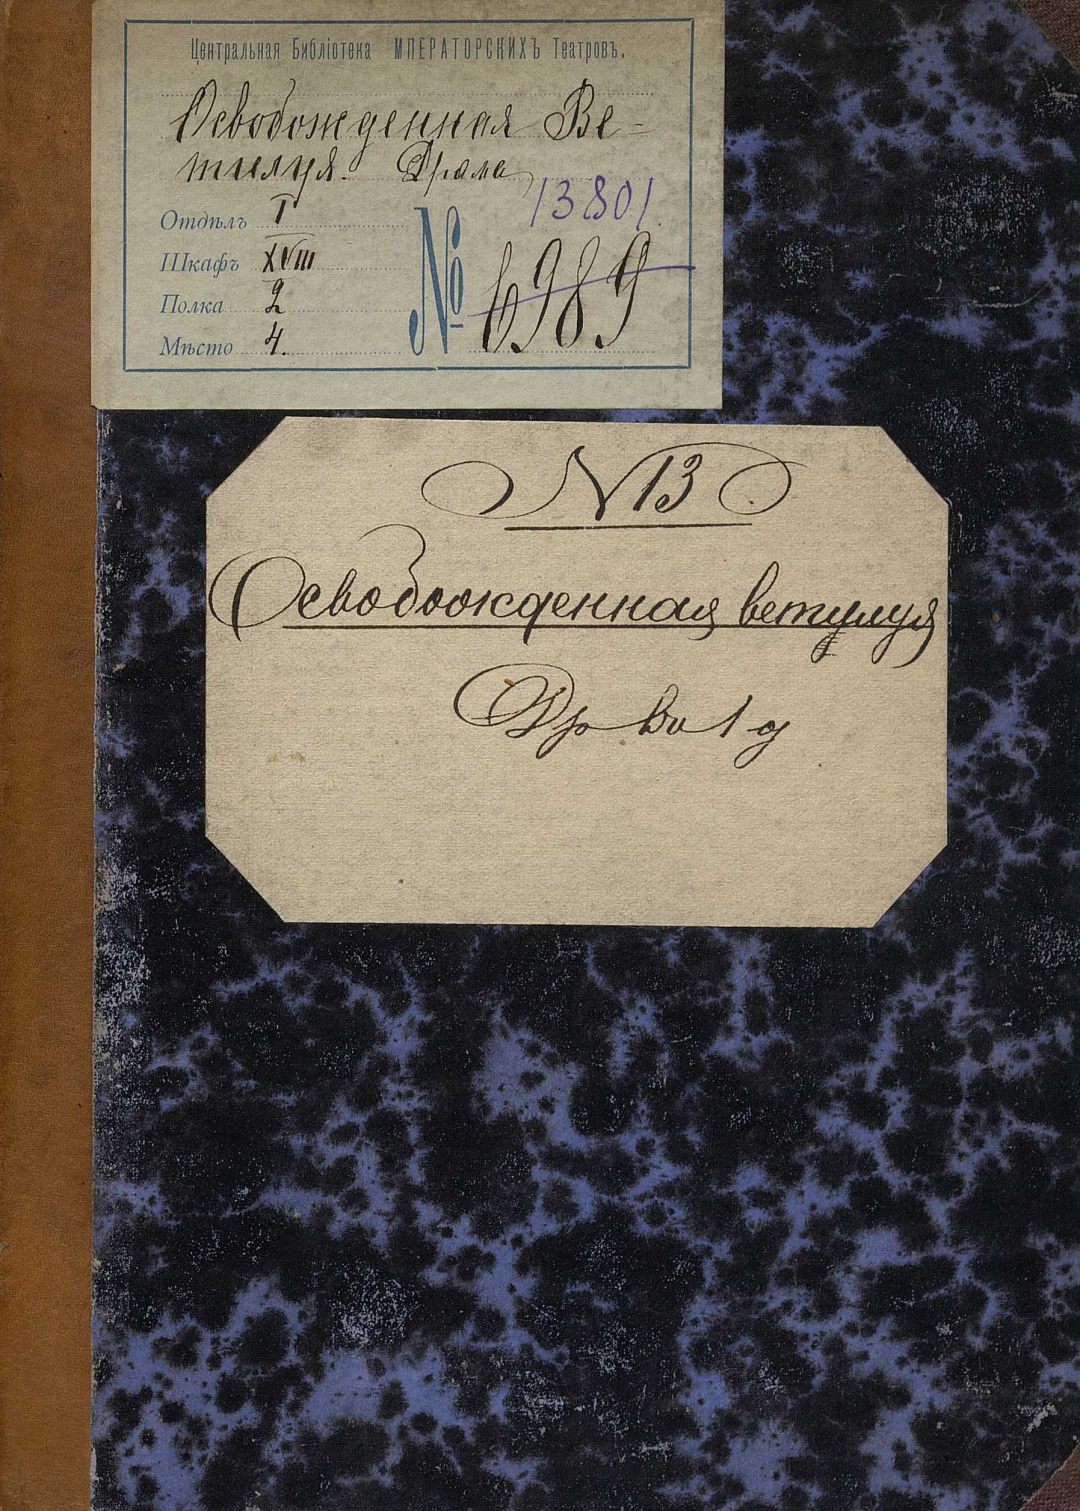 Центральная Библіотека МПЕРАТОРСКИХЪ Театровъ.
Освобожденная Ве=
тилуя. Драма
13801.
Отдѣлъ I
Шкафъ XVIII
Полка 2
Мѣсто 4.
№ 6989
N 13
Освобожденная ветулуя
Др во 1 д